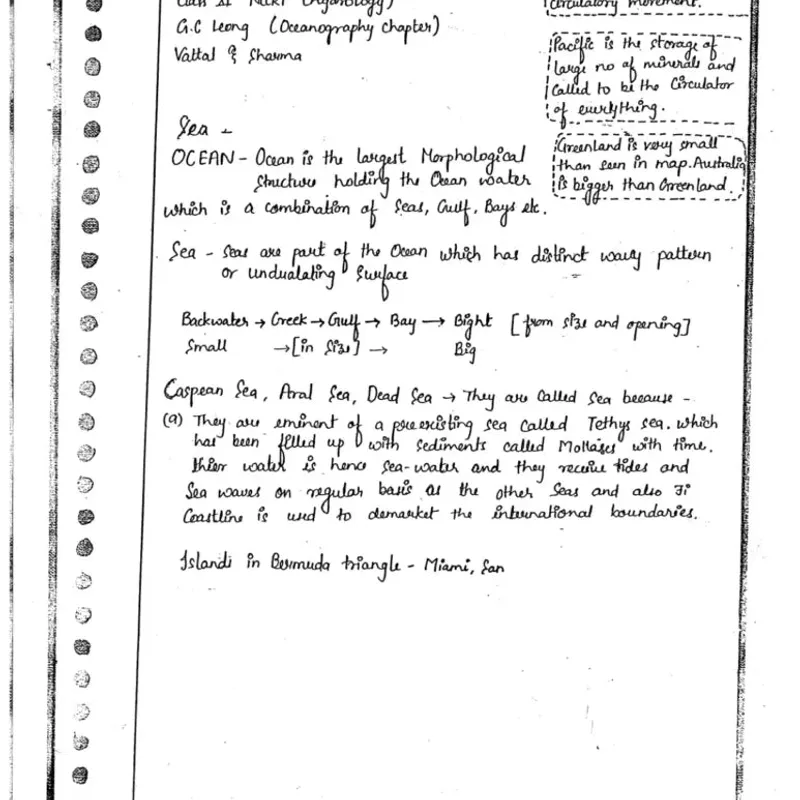 Class XI NCERT
G.C Leong (Oceanography chapter)
Vattal & Sharma
Circulatory movement.
Pacific is the storage of
large no of minerals and
called to be the Circulator
of everything.
Greenland is very small
than seen in map. Australia
is bigger than Greenland.
Sea -
OCEAN - Ocean is the largest Morphological
Structure holding the Ocean water
which is a combination of Seas, Gulf, Bays etc.
Sea - Seas are part of the Ocean which has distinct wavy pattern
or undualating Surface
Backwater → Creek → Gulf → Bay → Bight [from size and opening]
Small → [in size] → Big
Caspean Sea, Aral Sea, Dead Sea → They are called Sea because -
(a) They are eminent of a pre existing sea called Tethys sea. which
has been filled up with sediments called Mollases with time.
thier water is hence sea-water and they receive tides and
Sea waves on regular basis as the other Seas and also
Coastline is used to demarket the international boundaries.
Islands in Bermuda triangle - Miami, San